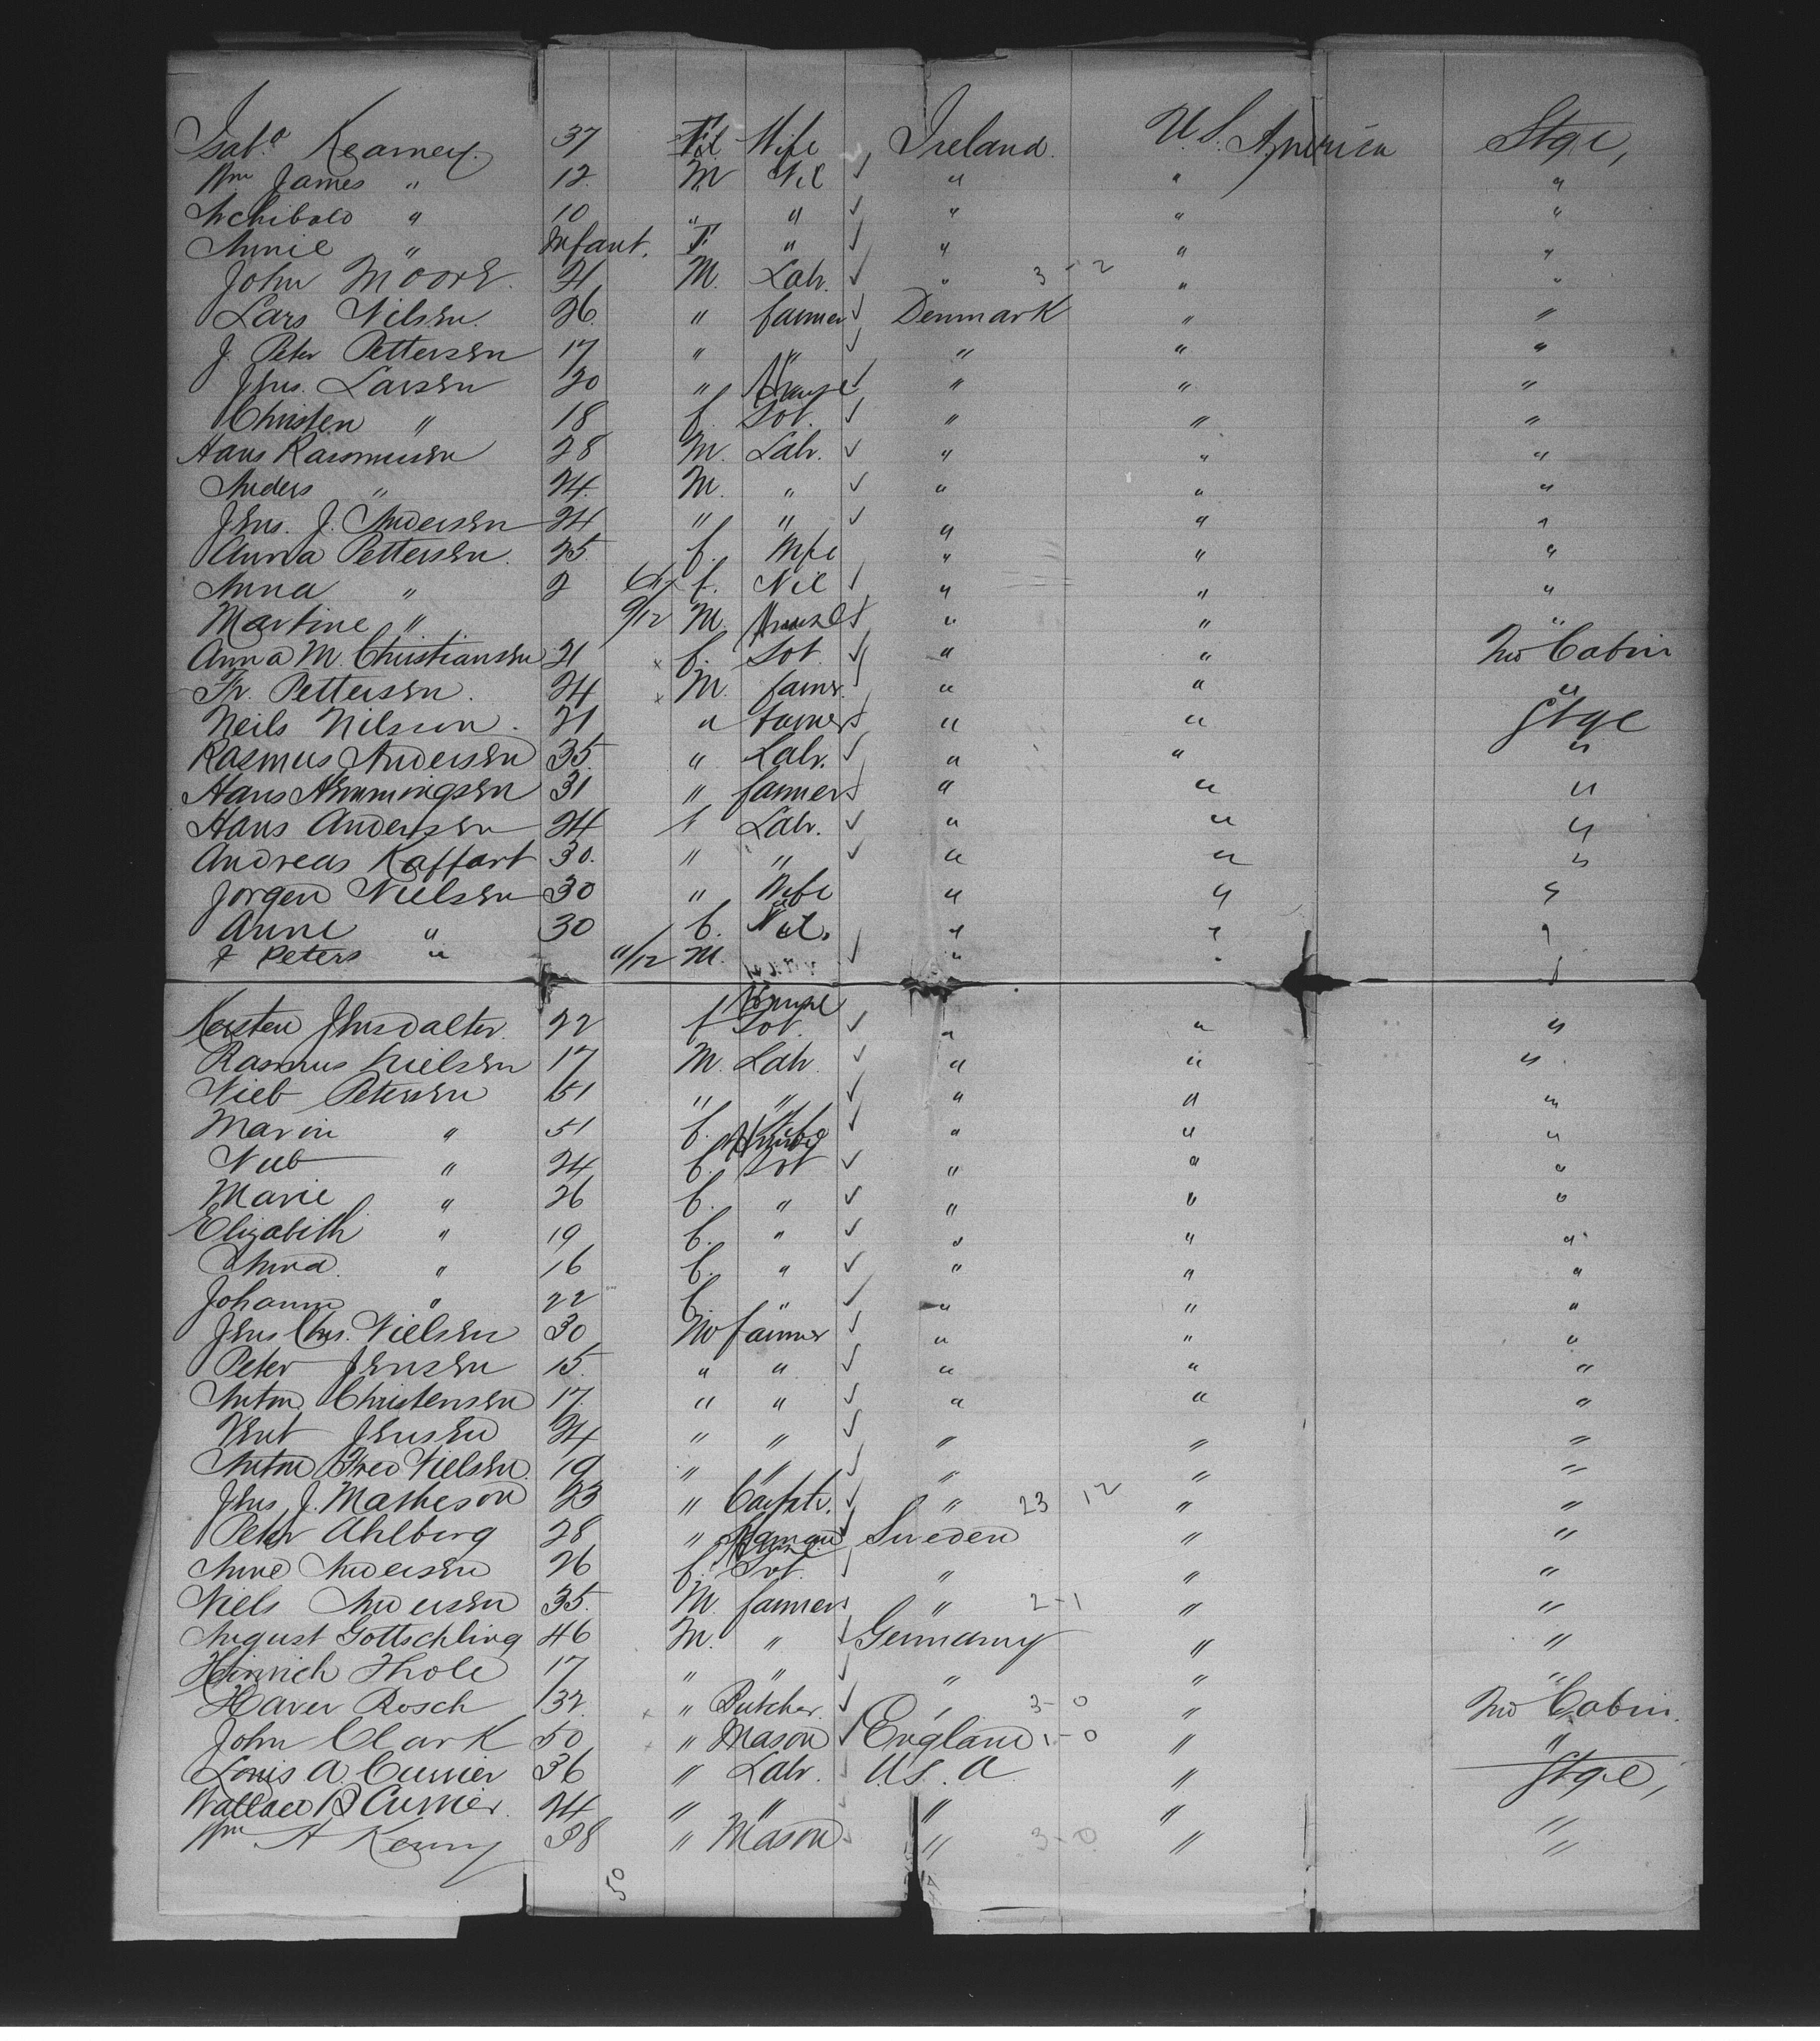 Isab.a Kearney. 37 F Wife Ireland. U.S. America Stge,
Wm James " 12. M Nil ✓ " " "
Archibald " 10 " " ✓ " " "
Annie " Infant. F. " ✓ " " "
John Moore. 21 M. Labr. ✓ " 3-2 " "
Lars Nilsen. 26. " farmer ✓ Denmark " "
J. Peter Pettersen 17 " " ✓ " " "
Jens. Larsen 20 " ✓ " " "
Christen " 18 f. Svt. ✓ " " "
Hans Rasmussen 28 M. Labr. ✓ " " "
Anders " 24. M. " ✓ " " "
Jens. J. Andersen 24 " " ✓ " " "
Anna Pettersen. 25. f. Wife " " "
Anna " 2 f. Nil ✓ " " "
Martine " 9/12 M. " " "
Anna M. Christiansen 21 x f. Svt. ✓ " " 2nd Cabin
Fr. Pettersen. 24 x M. famr. " " "
Neils Nilsson. 21 " famer " " Stge
Rasmus Andersen 35. " Labr. ✓ " " "
Hans Hemmingsen 31 " farmer " " "
Hans Andersen 24 Labr. ✓ " " "
Andreas Kaffart 30. " " ✓ " " "
Jorgen Nielsen 30 " Wife " " "
Anne " 30 f. Nil. " " "
J Peters " 11/12 M. ✓ " " "
Kersten Jensdalter. 22 f Svt. ✓ " " "
Rasmus Nielsen 17 M. Labr. ✓ " " "
Niels Petersen 51 " " ✓ " " "
Maren " 51 f. Wife ✓ " " "
Niels " 24 f. Svt ✓ " " "
Marie " 26 f. " ✓ " " "
Elizabith " 19 f. " ✓ " " "
Anna " 16 f. " ✓ " " "
Johanne " 22 f " ✓ " " "
Jens Chs. Nielsen 30 M farmer ✓ " " "
Peter Jensen 15. " " ✓ " " "
Anton Christensen 17. " " ✓ " " "
Jensen 24 " " ✓ " " "
Anton Fred Nielsen. 19 " " ✓ " " "
Jens J. Matheson 23 " Carptr. ✓ " 23 12 " "
Peter Ahlberg 28 " ✓ Sweden " "
Anne Andersen 26 f. Svt. ✓ " " "
Niels Andersen 35. M. farmer " 2-1 " "
August Gottschling 46 M. " ✓ Germany " "
Heinrich Thole 17 " " ✓ " " "
Xaver Rosch 32. x " Butcher. ✓ " 3-0 " 2nd Cabin.
John Clark 50 x " Mason ✓ England 1-0 " "
Louis A. Currier 36 " Labr. ✓ U.S. A " Stge,
Wallace B Currier. 24 " " ✓ " " "
Wm A Kenny 38 " Mason ✓ " 3-0 " "
50